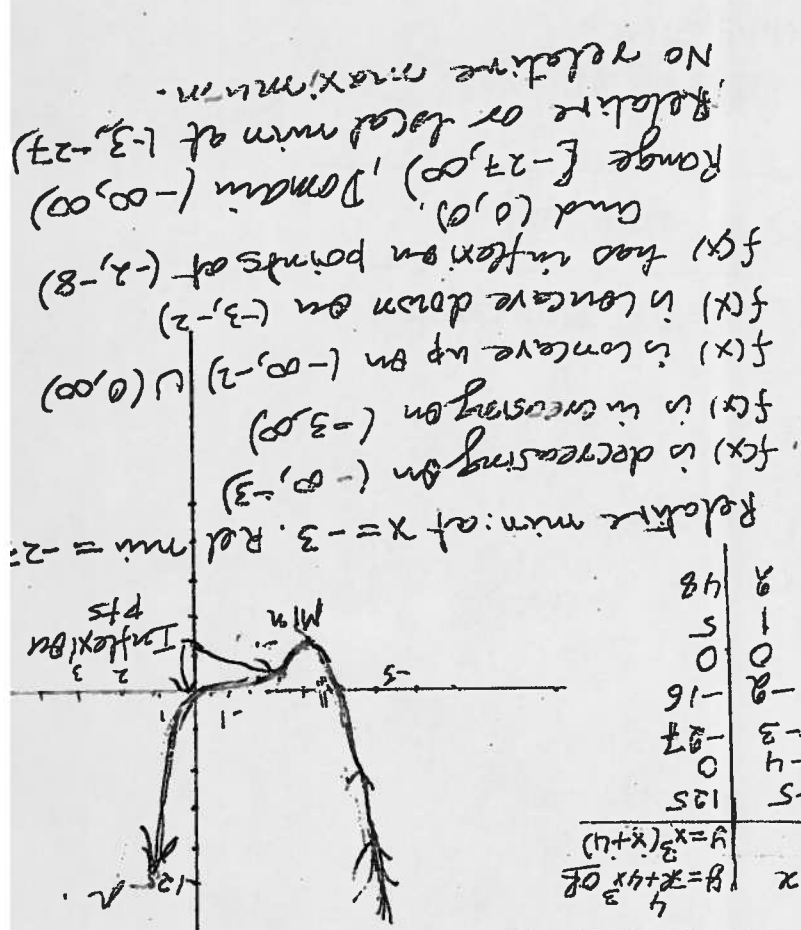 x | y = x⁴ + 4x³ OR
y = x³(x+4)
-5 | 125
-4 | 0
-3 | -27
-2 | -16
0 | 0
1 | 5
2 | 48
12
-5
-1
1
2
3
Min
Inflexion
pts
Relative min: at x = -3. Rel min = -27
f(x) is decreasing on (-∞, -3)
f(x) is increasing on (-3, ∞)
f(x) is concave up on (-∞, -2) ∪ (0, ∞)
f(x) is concave down on (-3, -2)
f(x) has inflexion points at (-2, -8)
and (0, 0).
Range [-27, ∞), Domain (-∞, ∞)
Relative or local min at (-3, -27)
No relative maximum.